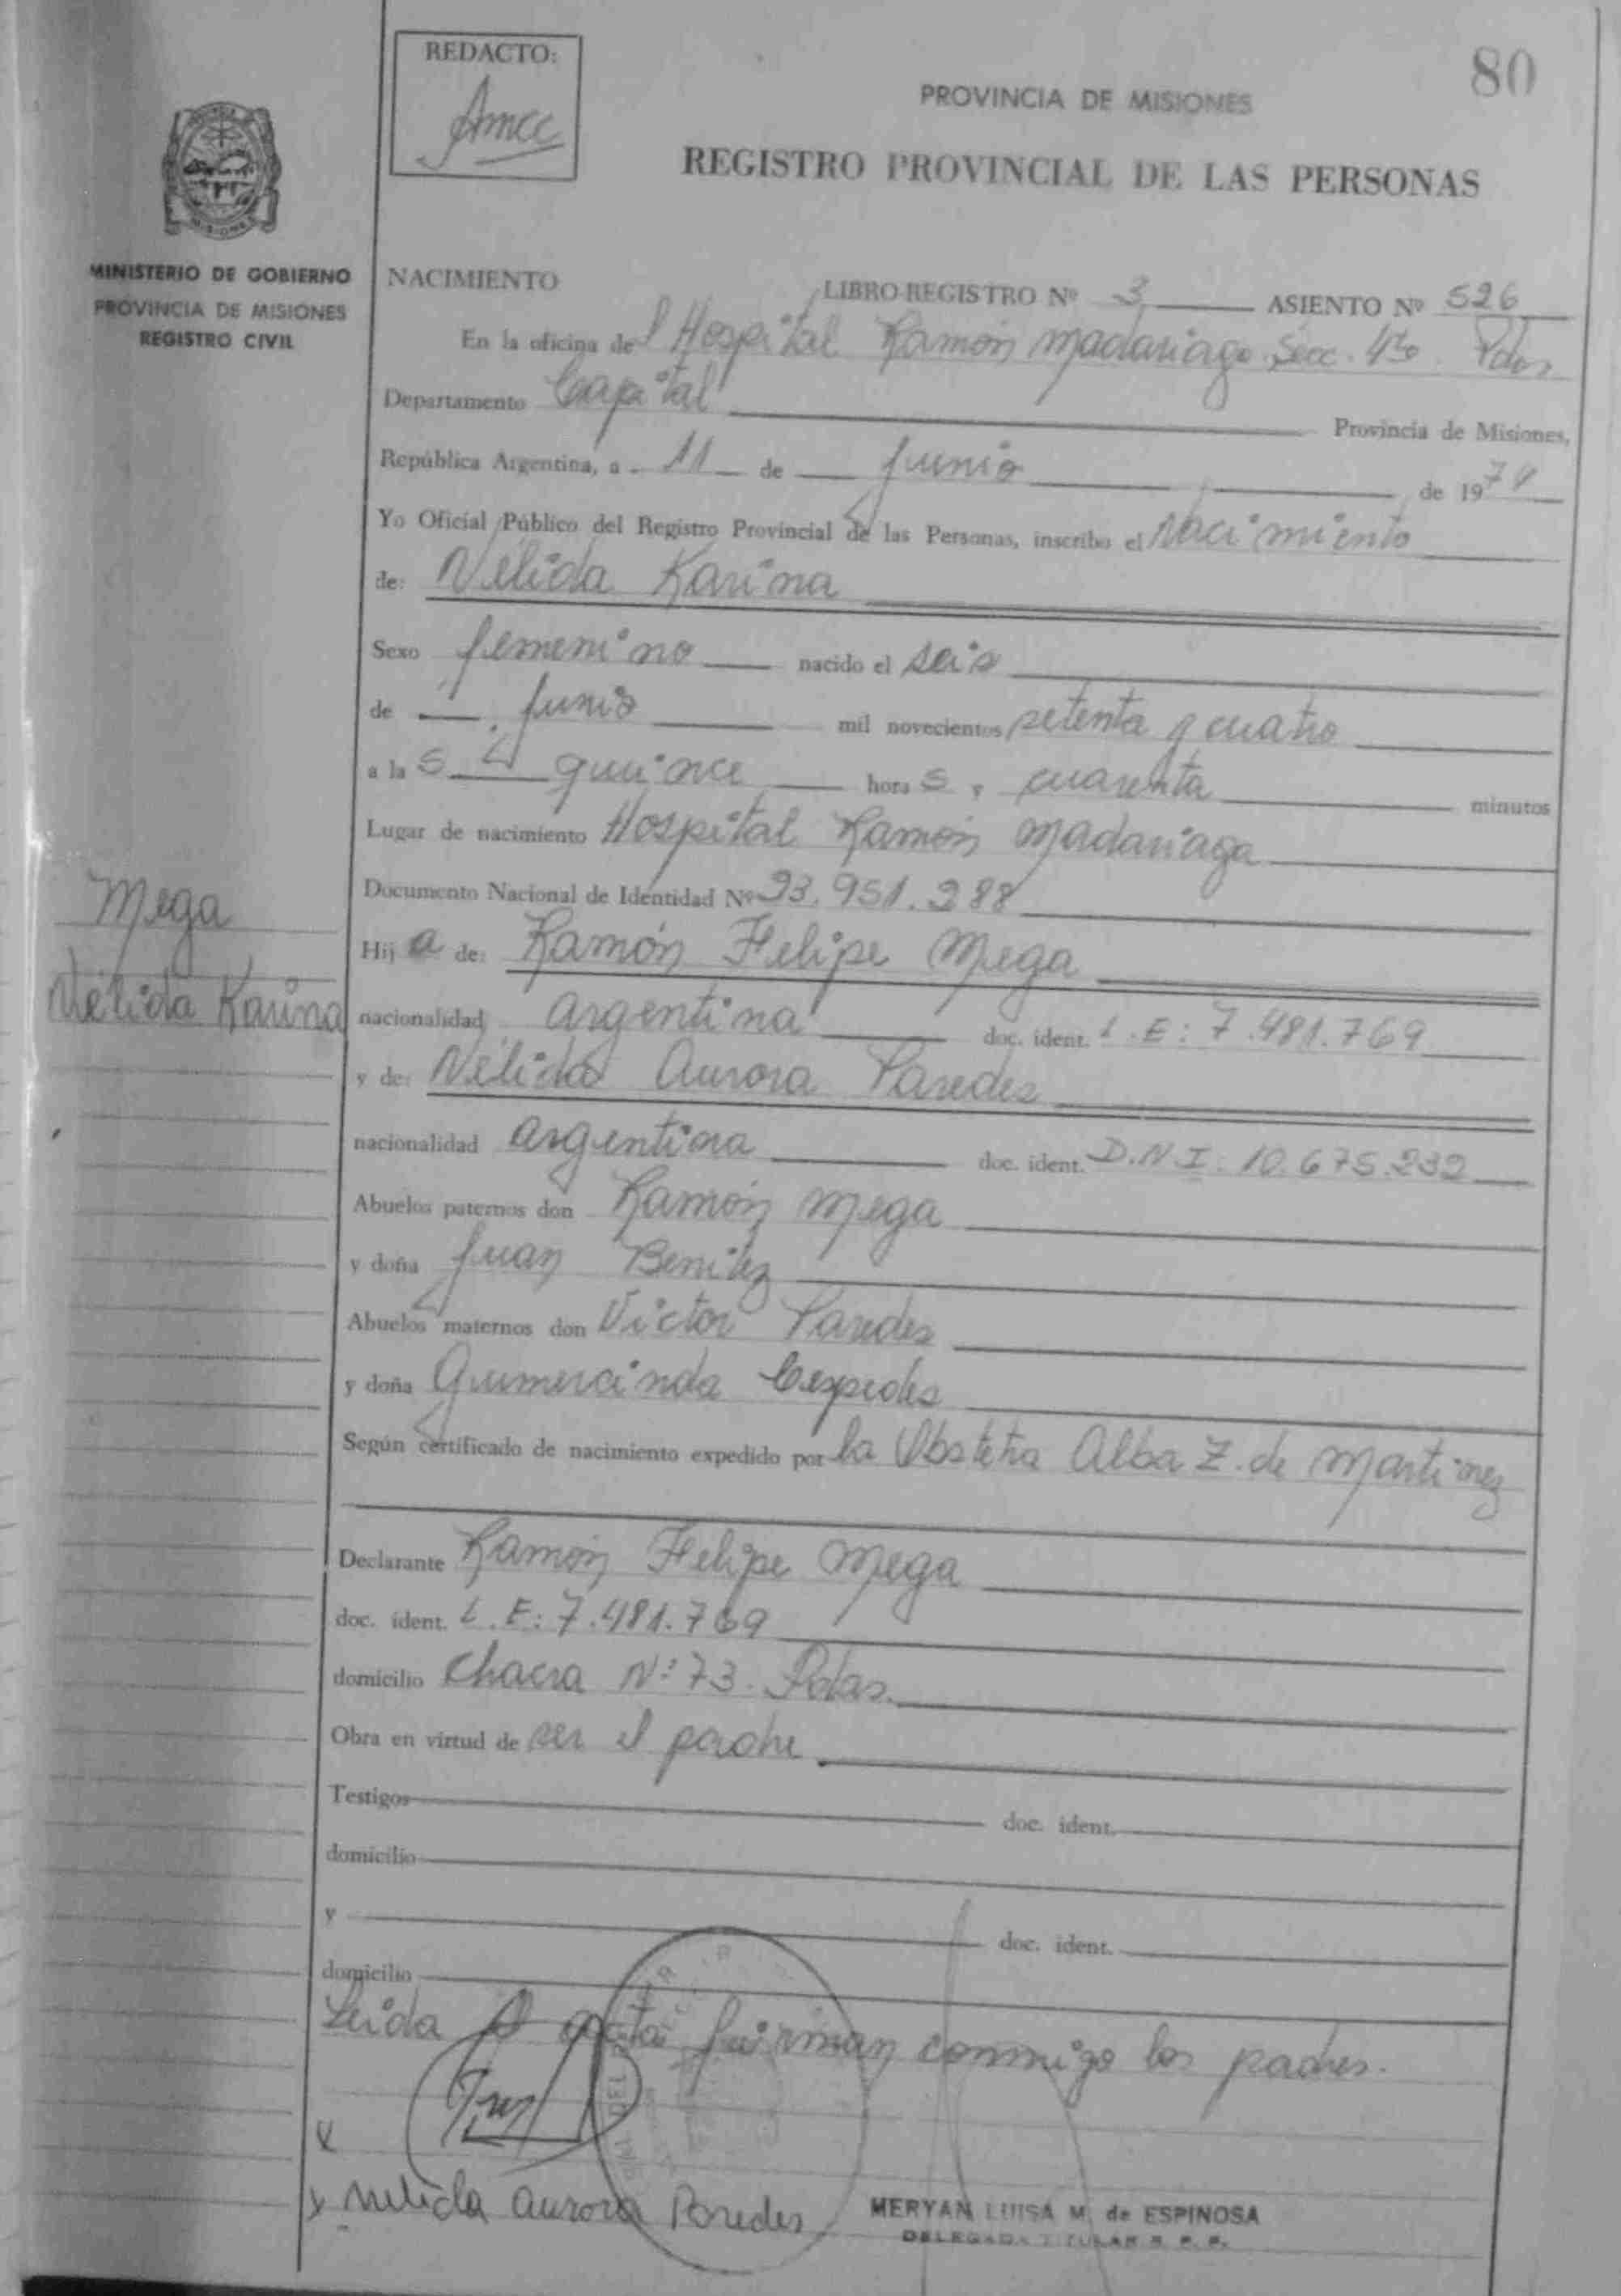 80
REDACTO:
PROVINCIA DE MISIONES
REGISTRO PROVINCIAL DE LAS PERSONAS
MINISTERIO DE GOBIERNO
PROVINCIA DE MISIONES
REGISTRO CIVIL
NACIMIENTO LIBRO-REGISTRO Nº 3 ASIENTO Nº 526
En la oficina del Hospital Ramón Madariaga Secc. 4ta Pdas
Departamento Capital Provincia de Misiones,
República Argentina, a 11 de Junio de 1974
Yo Oficial Público del Registro Provincial de las Personas, inscribo el Nacimiento
de: Nélida Karina
Sexo femenino nacido el seis
de Junio mil novecientos setenta y cuatro
a las quince horas y cuarenta minutos
Lugar de nacimiento Hospital Ramón Madariaga
Documento Nacional de Identidad Nº 23.951.288
Mega
Hija de: Ramón Felipe Mega
Nélida Karina
nacionalidad argentina doc. ident. L.E: 7.481.769
y de: Nélida Aurora Paredes
nacionalidad argentina doc. ident. D.N.I. 10.675.232
Abuelos paternos don Ramón Mega
y doña Juan Benitez
Abuelos maternos don Victor Paredes
y doña Gumercinda Cespedes
Según certificado de nacimiento expedido por la Obstetra Alba Z. de Martinez
Declarante Ramón Felipe Mega
doc. ident. L.E: 7.481.769
domicilio Chacra Nº 73. Pdas.
Obra en virtud de ser el padre
Testigos doc. ident.
domicilio
y doc. ident.
domicilio
Leida el acta firman conmigo los padres.
x
x Nelida Aurora Paredes
MERYAN LUISA M. de ESPINOSA
DELEGADA TITULAR R. P. P.